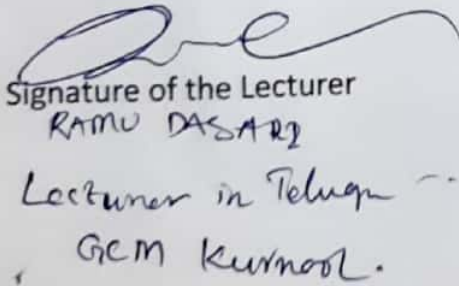 Signature of the Lecturer
RAMU DASARI
Lecturer in Telugu
GCM Kurnool.